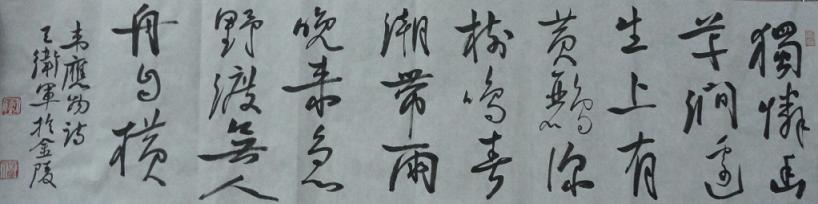 獨憐幽
草澗邊
生上有
黃鸝深
樹鳴春
潮帶雨
晚來急
野渡無人
舟自橫
韋應物詩
王衛軍於金陵